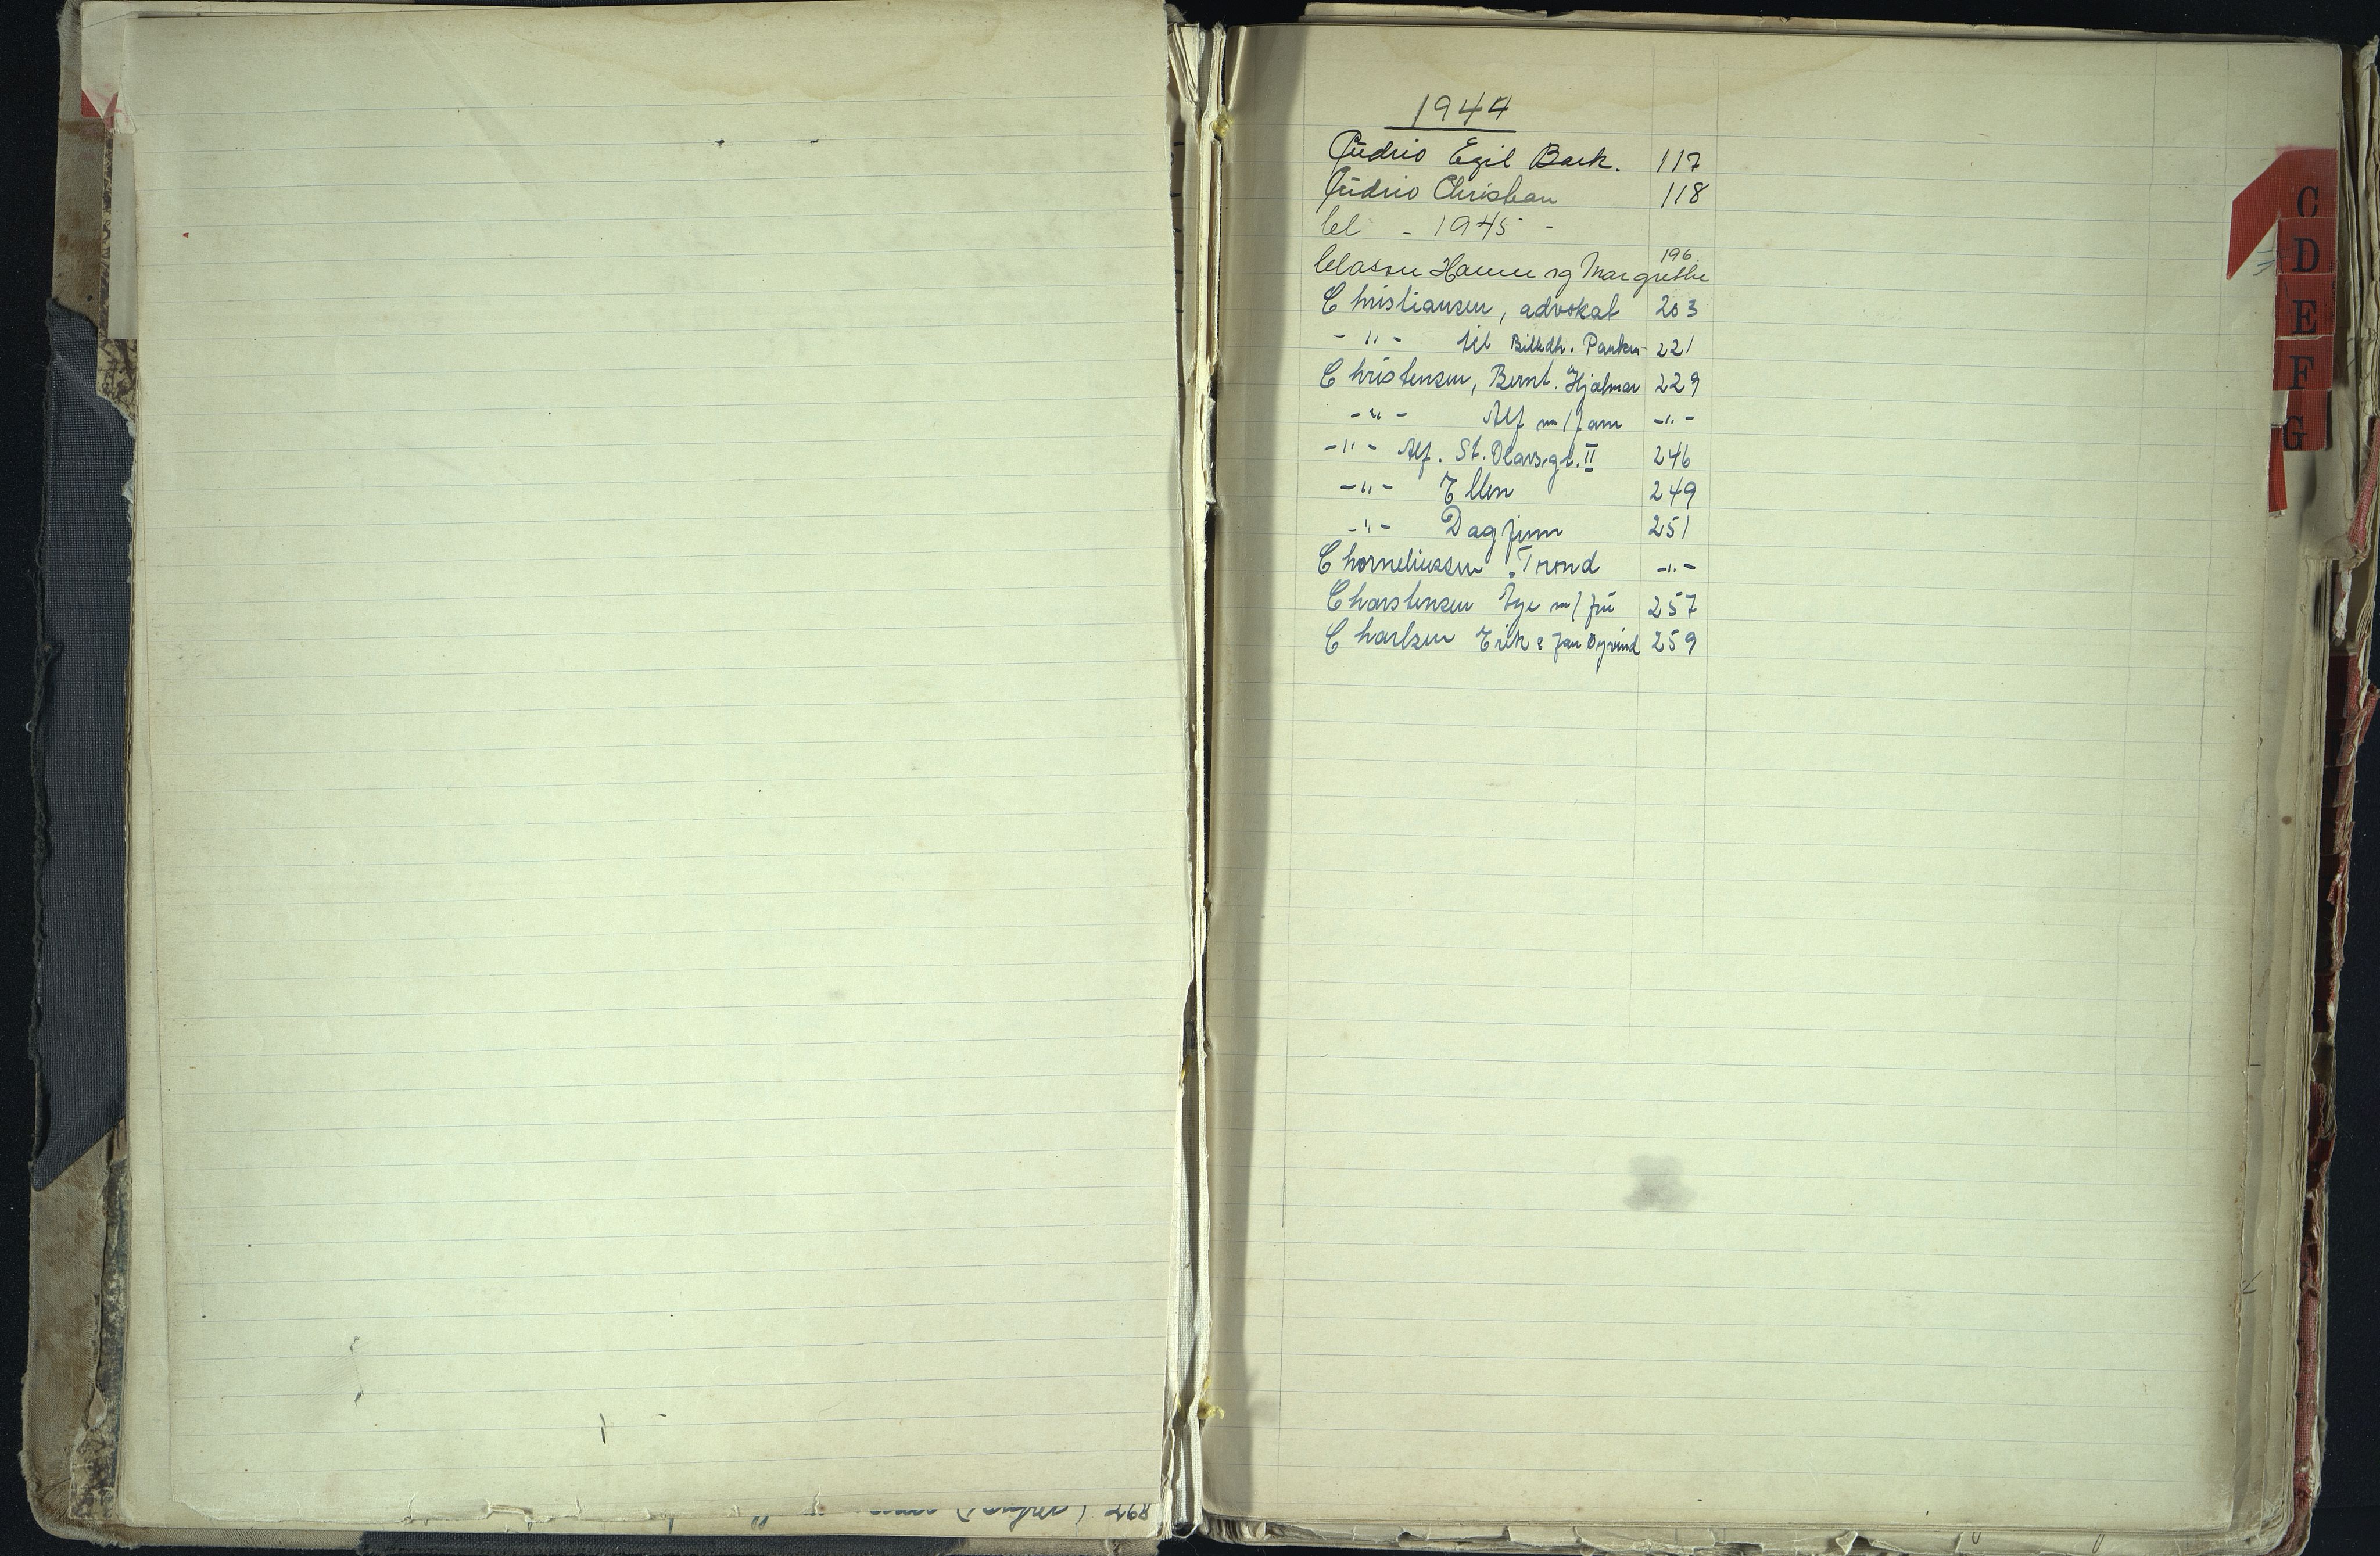 1944
Cüdrio Egil Back. 117
Cüdrio Christian 118
- 1945 -
Clason Hanne og Margrethe 196
Christiansen, advokat 203
- " - til Billedh. 221
Christensen, Bernt. og Hjalmar 229
- " - Alf m/fam - " -
- " - Alf. St. Olavsgt. II 246
- " - Ellen 249
- " - Dagfinn 251
Chorneliussen, Trond - " -
Charstensen m/frü 257
Charlsen Erik & Jan Øyvind 259
C
D
E
F
G
268